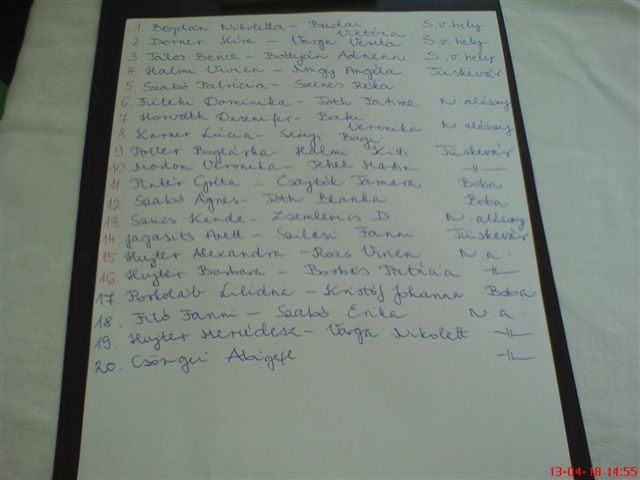 1. Bogdán Nikoletta - Budai Viktória S.v.hely
2. Dorner Kíra - Varga Venta S.v.hely
3. Tálos Bence - Bottyán Adrienn S.v.hely
4. Halmi Vivien - Nagy Angéla Tüskevár
5. Szabó Patrícia - Szenes Réka
6. Füleki Dominika - Tóth Fatime N.alásony
7. Horváth Dzsenifer - Baki Veronika N.alásony
8. Karner Lúcia - Bogi
9. Poller Boglárka - Halmi Kitti Tüskevár
10. Marton Veronika - Tehel Martin -||-
11. Pintér Gréta - Csajbók Tamara Boba
12. Szabó Ágnes - Tóth Blanka Boba
13. Szűcs Kende - Zsemlerics D. N.alásony
14. Jagasits Anett - Szilasi Fanni Tüskevár
15. Hujter Alexandra - Rozs Vivien N.a.
16. Hujter Barbara - Borbés Patrícia -||-
17. Porkoláb Liliána - Kristóf Johanna Boba
18. Filó Fanni - Szabó Enka N.a.
19. Hujter Mercédesz - Varga Nikolett -||-
20. Csöngei Abigél -||-
13-04-18 14:55